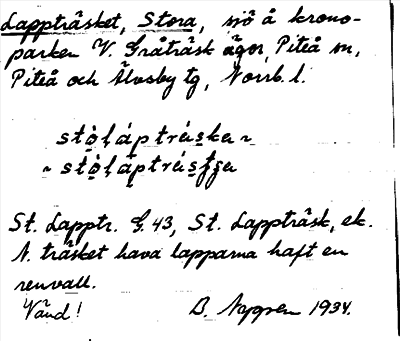 Lappträsket, Stora, sjö å krono-
parken V. Gråträsk ägor, Piteå m,
Piteå och Älvsby tg, Norrb. l.
stò̱láptrǽska ~
~ stò̱láptrǽsʃʃa
St. Lapptr. G. 43, St. Lappträsk, ek.
N. träsket hava lapparna haft en
renvall.
Vänd! B. Nygren 1934.